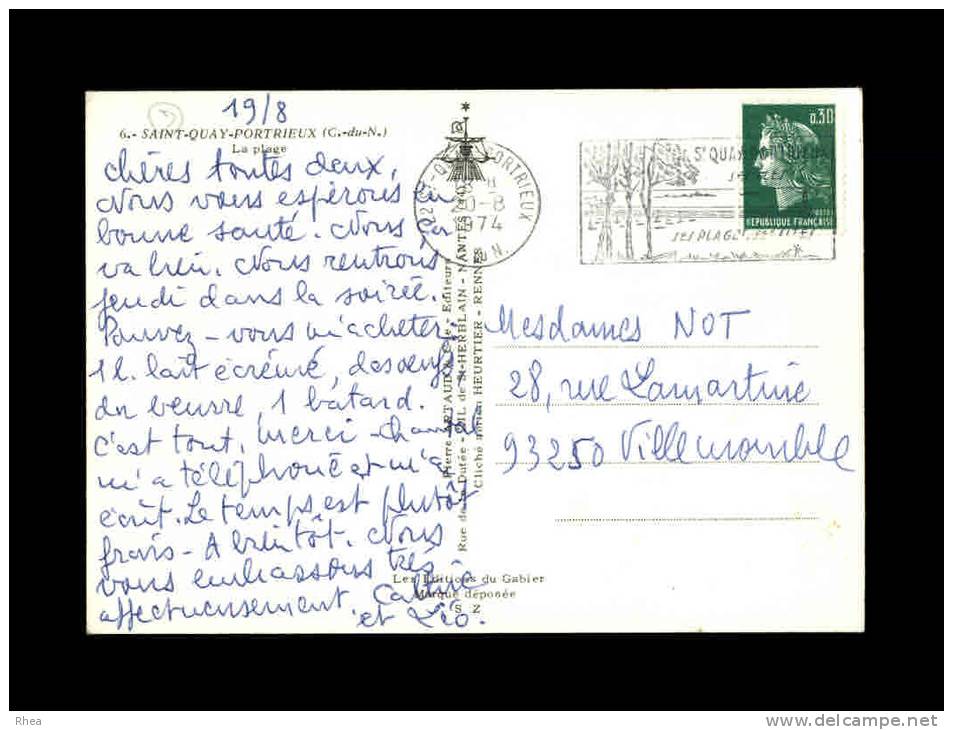 19/8
6.- SAINT-QUAY-PORTRIEUX (C.-du-N.)
La plage
chères toutes deux,
Nous vous espérons en
bonne santé. Nous ça
va bien. Nous rentrons
jeudi dans la soirée.
Pouvez-vous m'acheter:
1 l. lait écrémé, des oeufs
du beurre, 1 batard.
c'est tout. Merci - Chantal
m'a téléphoné et m'a
écrit. Le temps est plutôt
frais - A bientôt. Nous
vous embrassons très
affectueusement.
et Léo.
Pierre ARTAUD et Cie - Editeurs
Rue de la Dutée - ZIL de St-HERBLAIN - NANTES
Cliché aérien HEURTIER - RENNES
Les Editions du Gabier
Marque déposée
S Z
PORTRIEUX
20-8
1974
ST QUAY PORTRIEUX
SES PLAGES
0,30
REPUBLIQUE FRANÇAISE
Mesdames NOT
28, rue Lamartine
93250 Villemomble
Rhea
www.delcampe.net